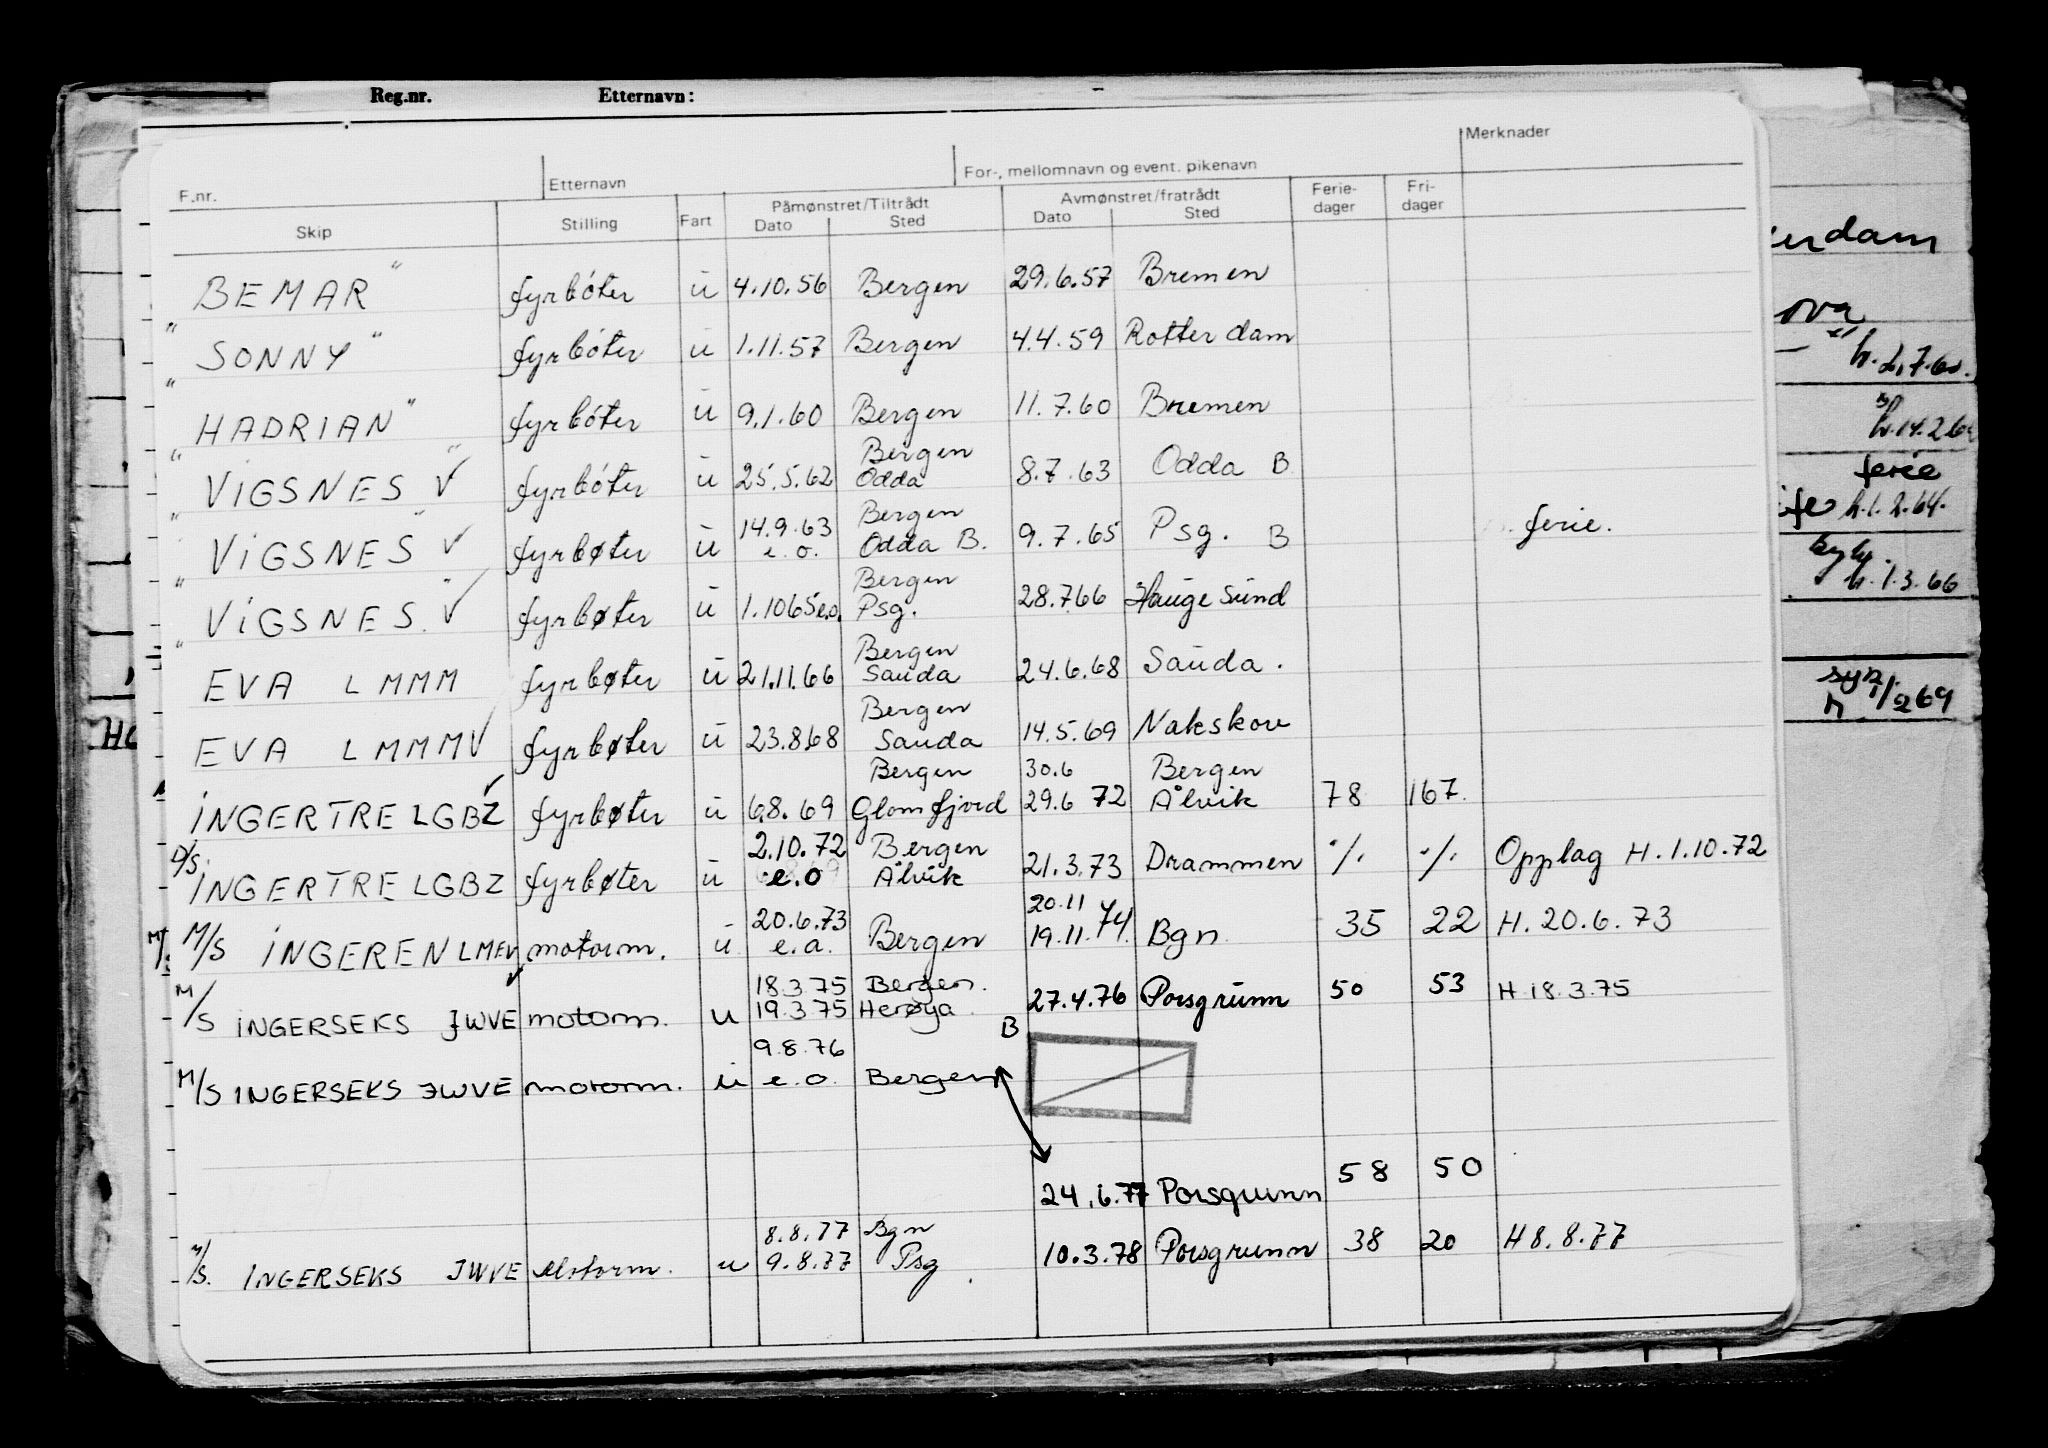 Reg.nr. Etternavn:
Merknader
F.nr. Etternavn For-, mellomnavn og event. pikenavn
Skip Stilling Fart Påmønstret/Tiltrådt Avmønstret/fratrådt Ferie-dager Fri-dager
Dato Sted Dato Sted
BEMAR" fyrbóter ū 4.10.56 Bergen 29.6.57 Bremen
" SONNY" fyrbóter ū 1.11.57 Bergen 4.4.59 Rotterdam
" HADRIAN" fyrbóter ū 9.1.60 Bergen 11.7.60 Bremen
Bergen
" ViGSNES" ✓ fyrbóter ū 25.5.62 Odda 8.7.63 Odda B
14.9.63 Bergen
" ViGSNES" ✓ fyrbøter ū e.o. Odda B. 9.7.65 Psg. B ferie.
Bergen
" ViGSNES ✓ fyrbøter ū 1.1065e.o. Psg. 28.766 Haugesund
Bergen
" EVA LMMM fyrbøter ū 21.11.66 Sauda 24.6.68 Sauda.
Bergen
EVA LMMM ✓ fyrbøter ū 23.868 Sauda 14.5.69 Nakskov
Bergen 30.6 Bergen
iNGERTRE LGBZ ✓ fyrbøter ū 6.8.69 Glomfjord 29.6 72 Ålvik 78 167.
2.10.72 Bergen
D/S iNGERTRE LGBZ fyrbøter ū e.o Ålvik 21.3.73 Drammen ./. ./. Opplag H.1.10.72
20.6.73 20.11
M/S iNGEREN motorm. ū e.a. Bergen 19.11.74. Bgn 35 22 H.20.6.73
18.3.75 Bergen.
M/S iNGERSEKS JWVE motorm. u 19.3.75 Herøya 27.4.76 Porsgrunn 50 53 H 18.3.75
9.8.76 B
M/S INGERSEKS JWVE motorm. ū e.o. Bergen
24.6.77 Porsgrunn 58 50
8.8.77 Bgn
M/S. INGERSEKS JWVE Motorm. u 9.8.77 Psg. 10.3.78 Porsgrunn 38 20 H 8.8.77
h.2.7.60.
ferie
h.1.2.64.
h.1.3.66